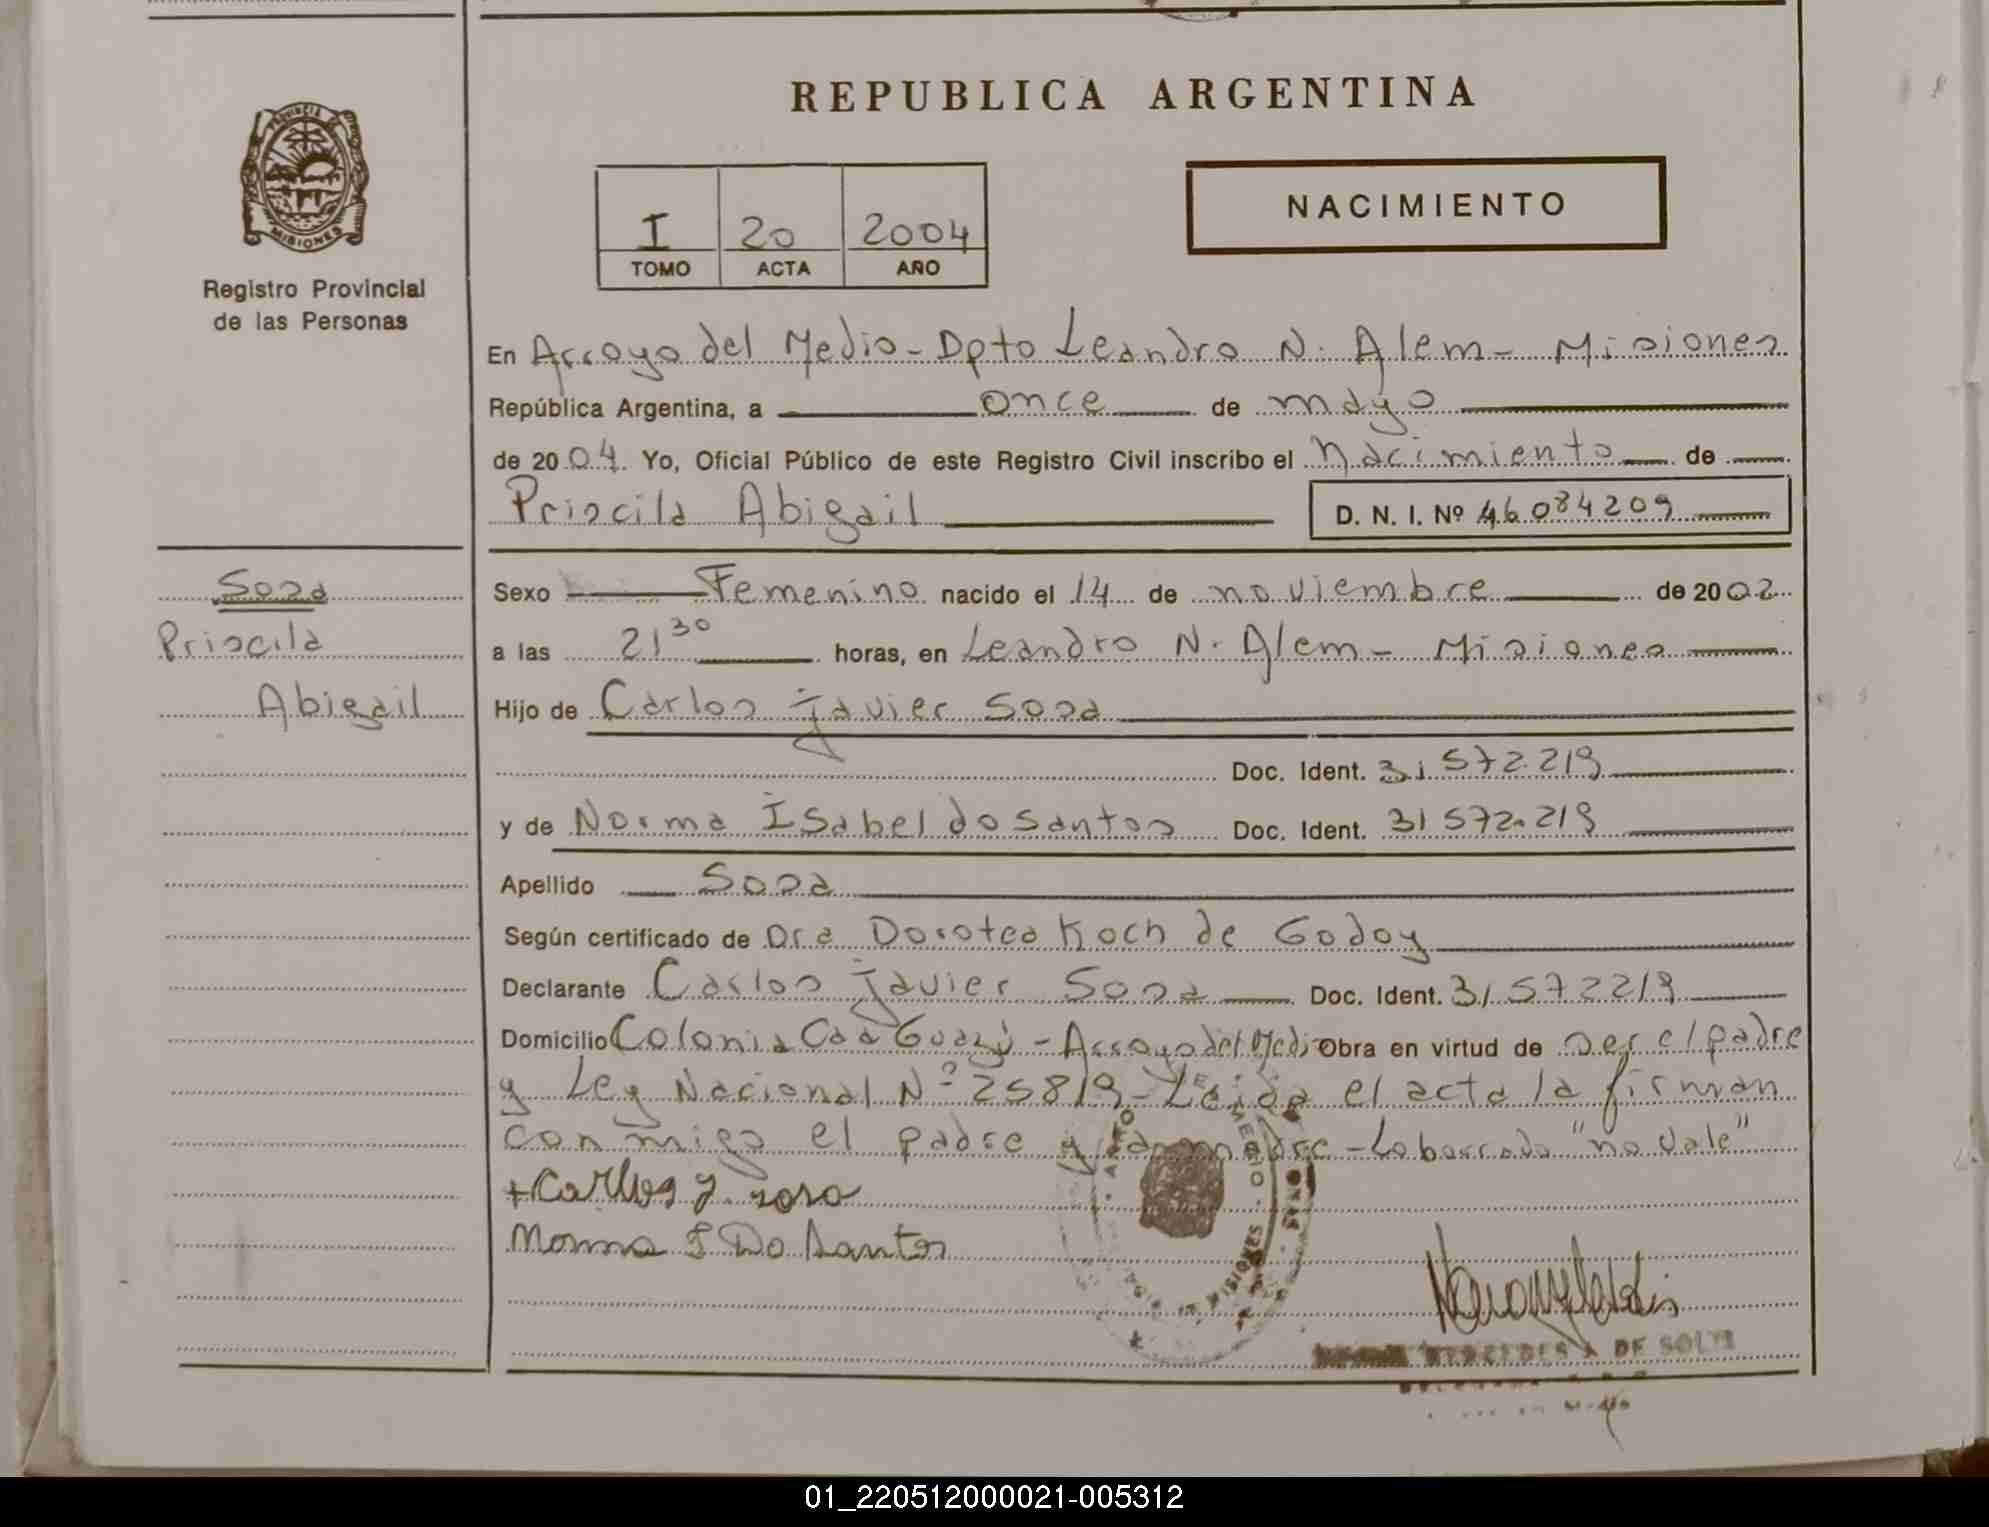 REPUBLICA ARGENTINA
PROVINCIA
MISIONES
Registro Provincial
de las Personas
I 20 2004
TOMO ACTA AÑO
NACIMIENTO
En Arroyo del Medio - Dpto Leandro N. Alem - Misiones
República Argentina, a once de mayo
de 2004. Yo, Oficial Público de este Registro Civil inscribo el Nacimiento de
Priscila Abigail D. N. I. Nº 46084209
Sosa
Priscila
Abigail
Sexo Femenino nacido el 14 de noviembre de 2002
a las 21 30 horas, en Leandro N. Alem - Misiones
Hijo de Carlos Javier Sosa
Doc. Ident. 31 572 219
y de Norma Isabel do Santos Doc. Ident. 31 572.219
Apellido Sosa
Según certificado de Dra Dorotea Koch de Godoy
Declarante Carlos Javier Sosa Doc. Ident. 31 572219
Domicilio Colonia Caá Guazú - Arroyo del Medi Obra en virtud de ser el padre
y Ley Nacional Nº 25819 - Leida el acta la firman
conmigo el padre y la madre - Lo borrado "no vale"
+ Carlos J. Sosa
Norma I Do Santos
MEDIO
MISIONES
MERCEDES A DE SOLIS
01_220512000021-005312